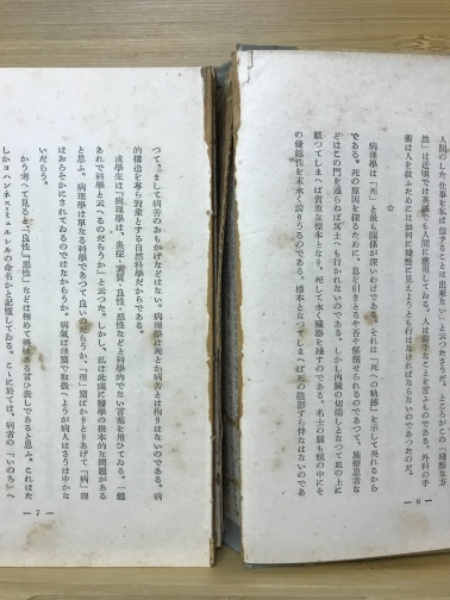 人間のした仕事を私は信することは出來ない」と云つたさうだ。ところがこの「殘酷な方
法」は近頃では英國でも人間に應用してゐる。人は勝手なことを言ふものである。外科の手
術は人を救ふためには如何に殘酷に見えようとも行はなければならないのであつたのだ。
☆
病理學は「死」と最も關係が深いわけである。それは「死への軌跡」を示して呉れるから
である。死の原因を探るために、息を引きとるや否や解剖せられるのであつて、施療患者な
どはこの門を通らねば冥土へも行かれないのである。しかし内臓の切端しとなつて皿の上に
載つてしまへば貴重な標本となり、死して永く臓器を殘すのである。名士の腦も瓶の中にそ
の優越性を末永く誇りうるのである。標本となつてしまへば死の陰影すら伴なはないのであ
— 6 —
つて、まして病苦のおもかげなどはない。病理學は死とか病苦とは拘りはないのである。病
的構造を專ら對象とする自然科學だからである。
或學生は「病理學は、炎症・變質・良性・惡性などと科學的でない言葉を用ひてゐる。一體
あれで科學と云へるのだらうか」と云つた。しかし、私は此處に醫學の根本的な問題がある
と思ふ。病理學は單なる科學であつて良いのだらうか、「理」窟ばかりとりあげて「病」理
はおろそかにされてゐるのではなからうか。病氣は理窟で取扱へようが病人はさうはゆかな
いだらう。
かう考へて見ると「良性」「惡性」などは極めて興味ある言ひ表しであると思ふ。これはた
しかヨハンネス・ミュルレルの命名かと記憶してゐる。こゝに於ては、病者の「いのち」へ
— 7 —